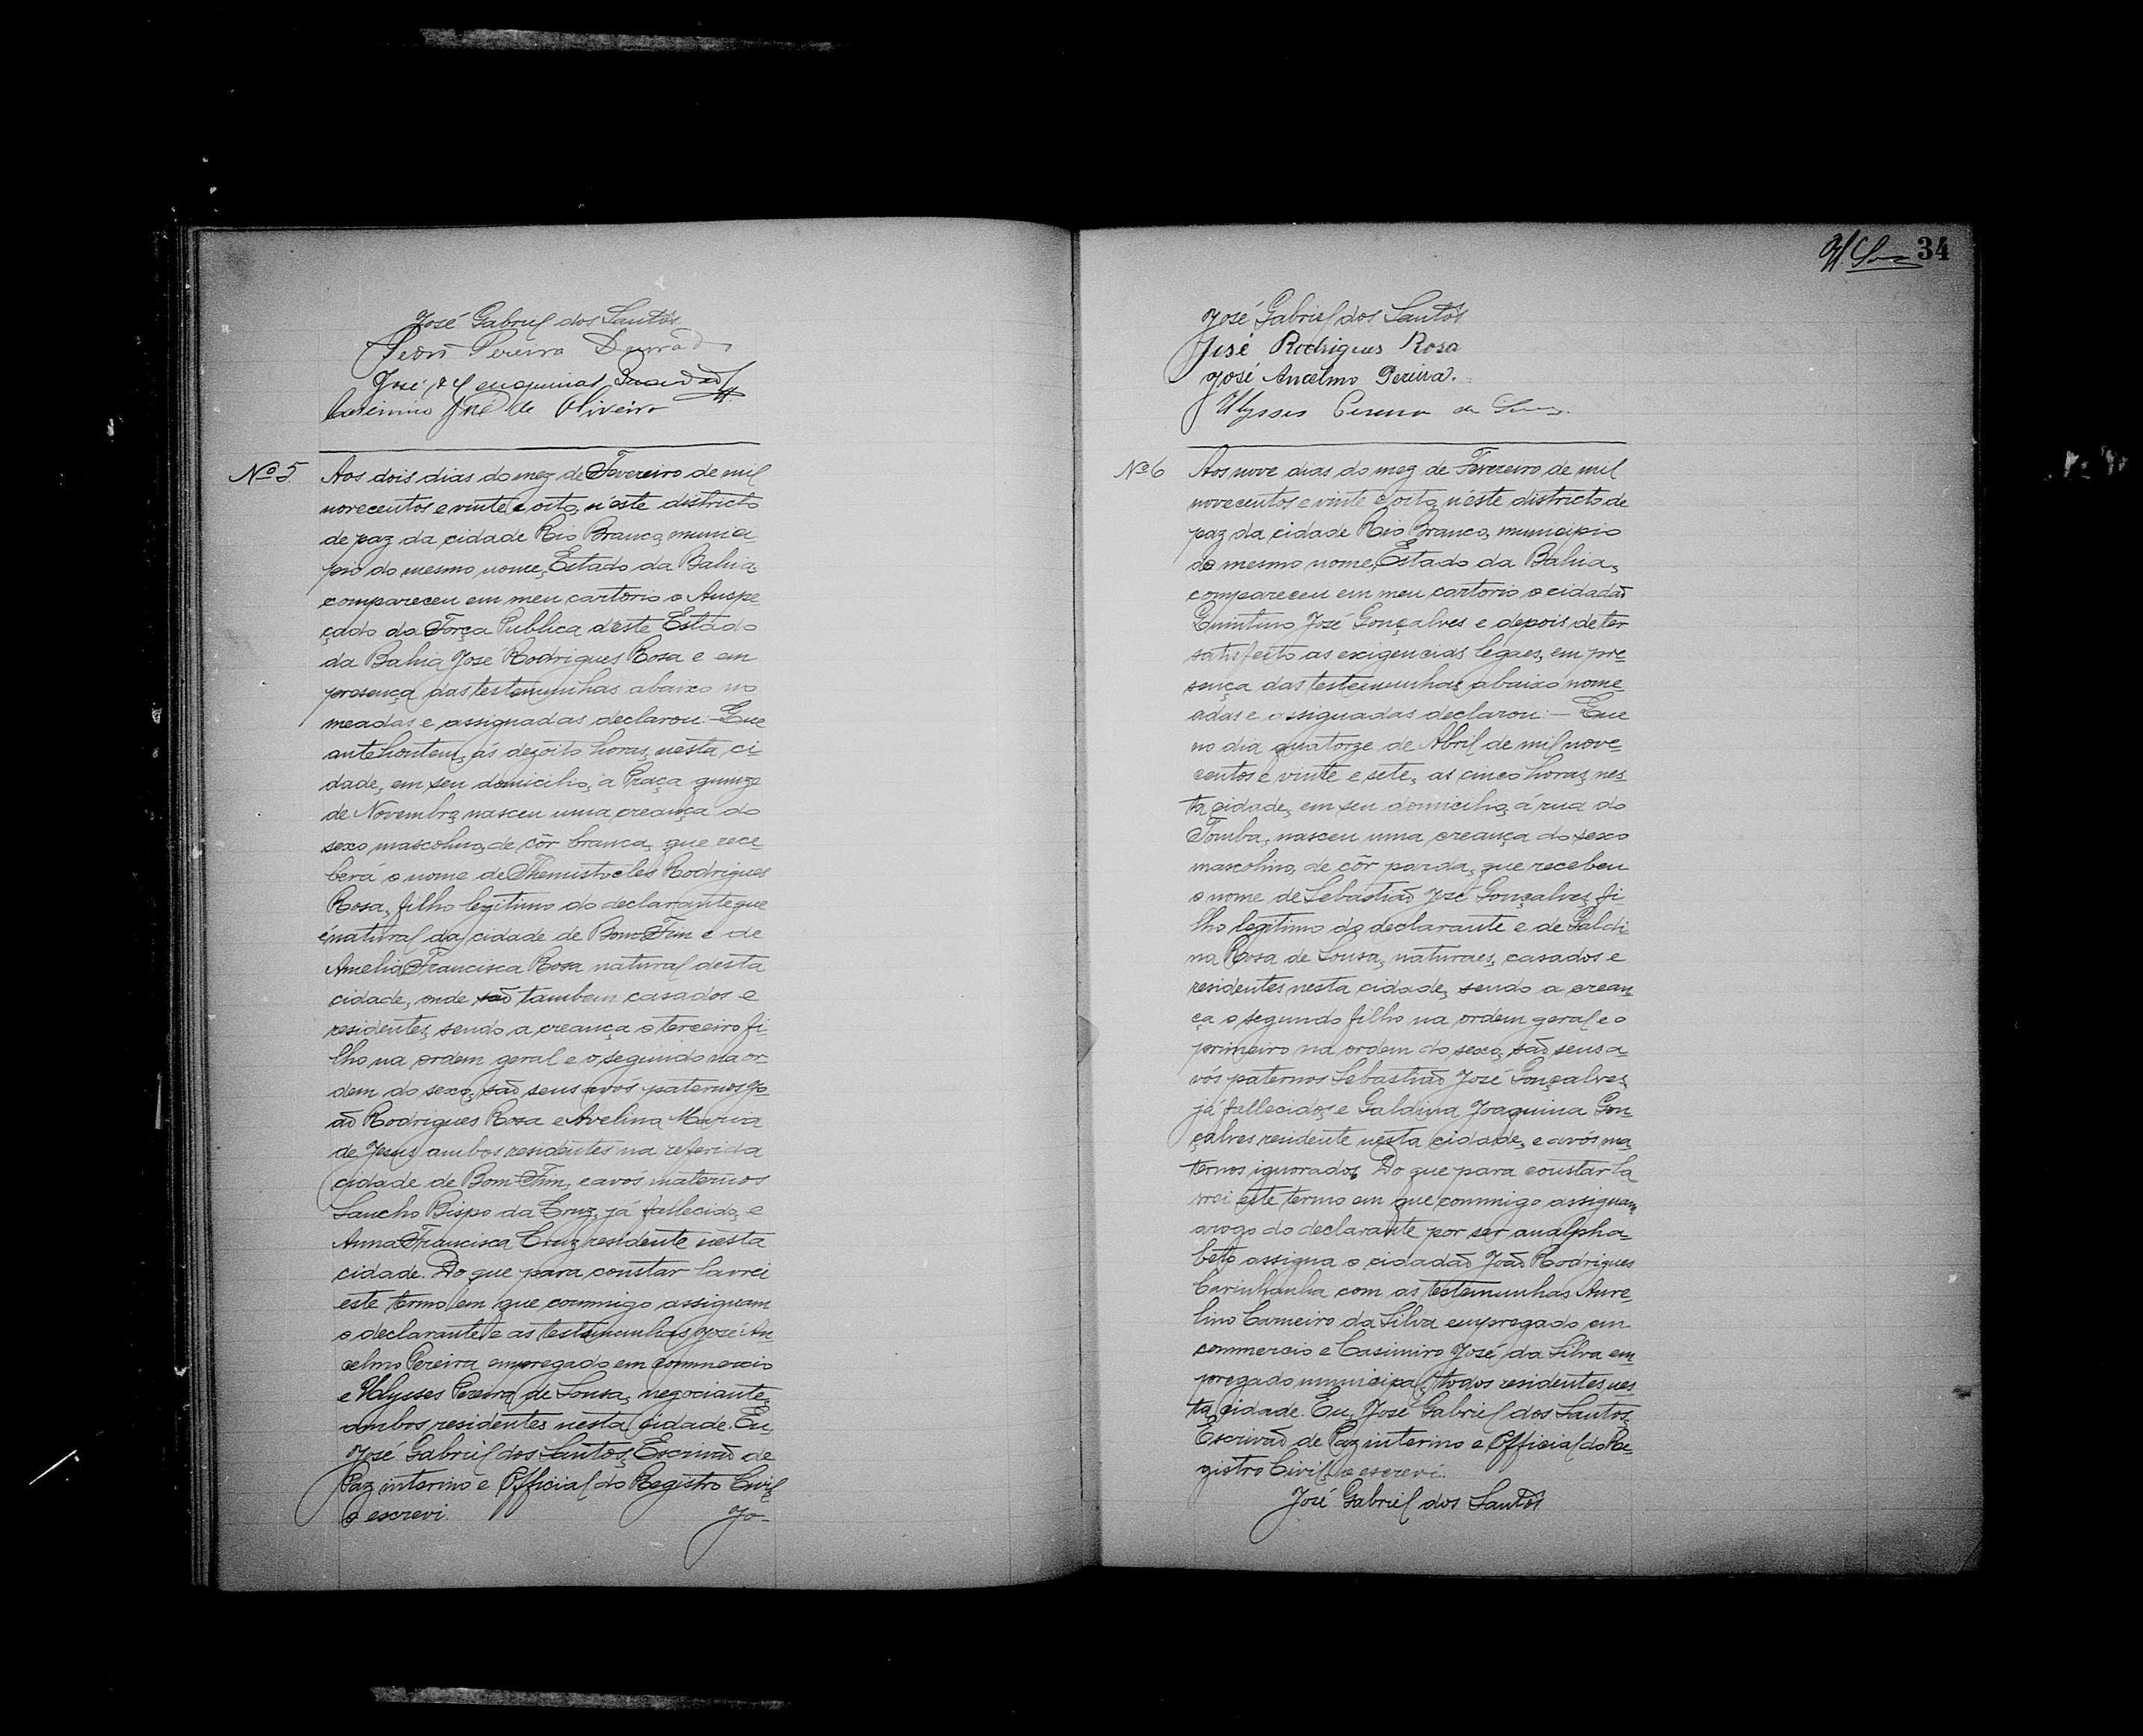 José Gabriel dos Santos
Pereira
José
José de Oliveira
Nº 5
Aos dois dias do mez de Fevereiro de mil
novecentos e vinte e oito, n'este districto
de paz da cidade Rio Branco, munici-
pio do mesmo nome, Estado da Bahia
compareceu em meu cartorio o Anspe-
çado da Força Publica d'este Estado
da Bahia José Rodrigues Rosa e em
presença das testemunhas abaixo no
meadas e assignadas declarou:- Que
antehontem, ás dezoito horas, nesta ci-
dade, em seu domicilio, a Praça quinze
de Novembro, nasceu uma creança do
sexo mascolino, de côr branca, que rece-
berá o nome de Themistocles Rodrigues
Rosa, filho legitimo do declarante que
é natural da cidade de Bom Fim e de
Amelia Francisca Rosa natural desta
cidade, onde são tambem casados e
residentes, sendo a creança o terceiro fi-
lho na ordem geral e o segundo na or-
dem do sexo, são seus avós paternos Jo-
ão Rodrigues Rosa e Avelina Maria
de Jesus ambos residentes na referida
cidade de Bom-Fim, e avós maternos
Sancho Bispo da Cruz, já fallecido, e
Anna Francisca Cruz, residente nesta
cidade. Do que para constar lavrei
este termo em que commigo assignam
o declarante e as testemunhas José An
celmo Pereira empregado em commercio
e Ulysses Pereira de Sousa, negociante,
ambos residentes nesta cidade. Eu,
José Gabriel dos Santos, Escrivão de
Paz interino e Official do Registro Civil,
o escrevi.
Jo-
34
José Gabriel dos Santos
José Rodrigues Rosa
José Ancelmo Pereira.
Ulysses Pereira de Sousa.
Nº 6
Aos nove dias do mez de Fevereiro de mil
novecentos e vinte e oito, n'este districto de
paz da cidade Rio Branco, municipio
do mesmo nome, Estado da Bahia,
compareceu em meu cartorio o cidadão
Quintino José Gonçalves e depois de ter
satisfeito as exigencias legaes, em pre-
sença das testemunhas abaixo nome-
adas e assignadas declarou:- Que
no dia quatorze de Abril de mil nove-
centos e vinte e sete, as cinco horas, nes-
ta cidade, em seu domicilio, á rua do
Tomba, nasceu uma creança do sexo
mascolino, de côr parda, que recebeu
o nome de Sebastião José Gonçalves, fi-
lho legitimo do declarante e de Galdi-
na Rosa de Sousa, naturaes, casados e
residentes nesta cidade, sendo a crean-
ça o segundo filho na ordem geral e o
primeiro na ordem do sexo, são seus a-
vós paternos Sebastião José Gonçalves,
já fallecido, e Galdina Joaquina Gon-
çalves residente nesta cidade, e avós ma-
ternos ignorados. Do que para constar la
vrei este termo em que commigo assignam
arogo do declarante por ser analpha-
beto assigna o cidadão João Rodrigues
Carinhanha com as testemunhas Aure-
lino Carneiro da Silva empregado em
commercio e Casimiro José da Silva em
pregado municipal, todos residentes nes
ta cidade. Eu, José Gabriel dos Santos,
Escrivão de Paz interino e Official do Re-
gistro Civil, o escrevi.
José Gabriel dos Santos